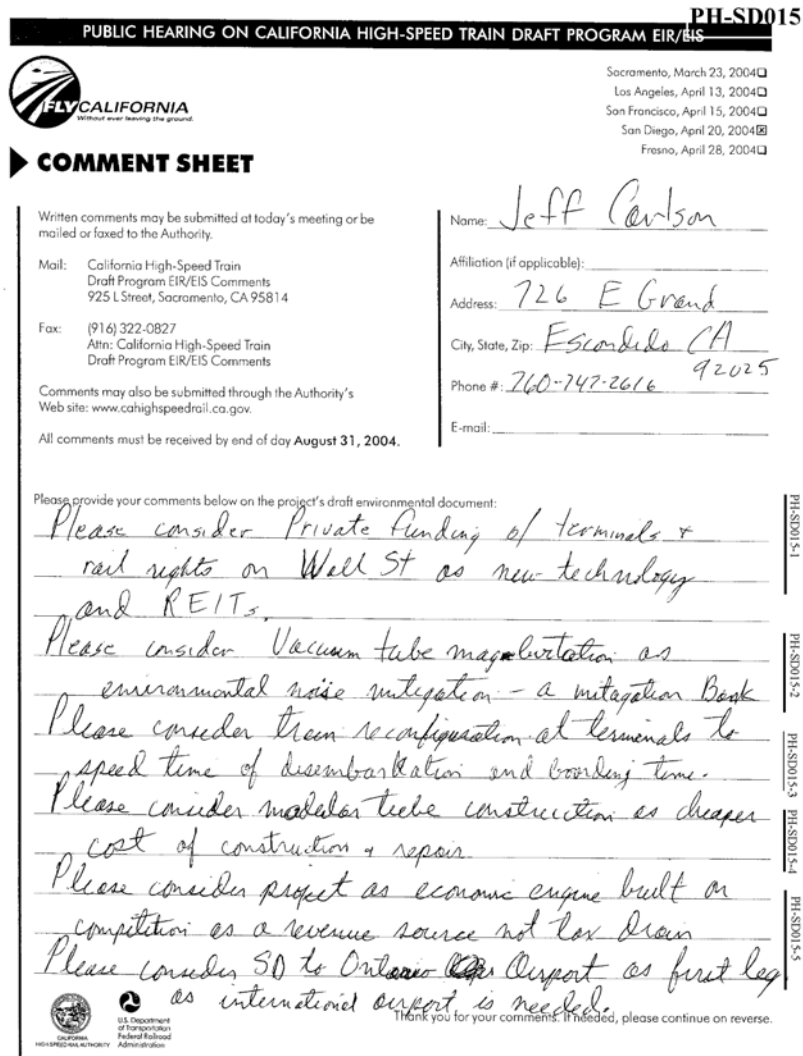 PH-SD015
PUBLIC HEARING ON CALIFORNIA HIGH-SPEED TRAIN DRAFT PROGRAM EIR/EIS
Sacramento, March 23, 2004☐
Los Angeles, April 13, 2004☐
San Francisco, April 15, 2004☐
San Diego, April 20, 2004☒
Fresno, April 28, 2004☐
FLY CALIFORNIA
Without ever leaving the ground.
COMMENT SHEET
Written comments may be submitted at today's meeting or be
mailed or faxed to the Authority.
Mail: California High-Speed Train
Draft Program EIR/EIS Comments
925 L Street, Sacramento, CA 95814
Fax: (916) 322-0827
Attn: California High-Speed Train
Draft Program EIR/EIS Comments
Comments may also be submitted through the Authority's
Web site: www.cahighspeedrail.ca.gov.
All comments must be received by end of day August 31, 2004.
Name: Jeff Carlson
Affiliation (if applicable):
Address: 726 E Grand
City, State, Zip: Escondido CA
92025
Phone #: 760-747-2616
E-mail:
Please provide your comments below on the project's draft environmental document:
Please consider Private funding of terminals +
rail rights on Wall St as new technology
and REITs.
Please consider Vacuum tube maglevitation as
environmental noise mitigation - a mitagation Bank
Please consider train reconfiguration at terminals to
speed time of disembarkation and boarding time.
Please consider modular tube construction as cheaper
cost of construction + repair
Please consider project as economic engine built on
competition as a revenue source not tax drain
Please consider SD to Ontario Airport as first leg
as international airport is needed.
Thank you for your comments. If needed, please continue on reverse.
CALIFORNIA
HIGH-SPEED RAIL AUTHORITY
U.S. Department
of Transportation
Federal Railroad
Administration
PH-SD015-1
PH-SD015-2
PH-SD015-3
PH-SD015-4
PH-SD015-5